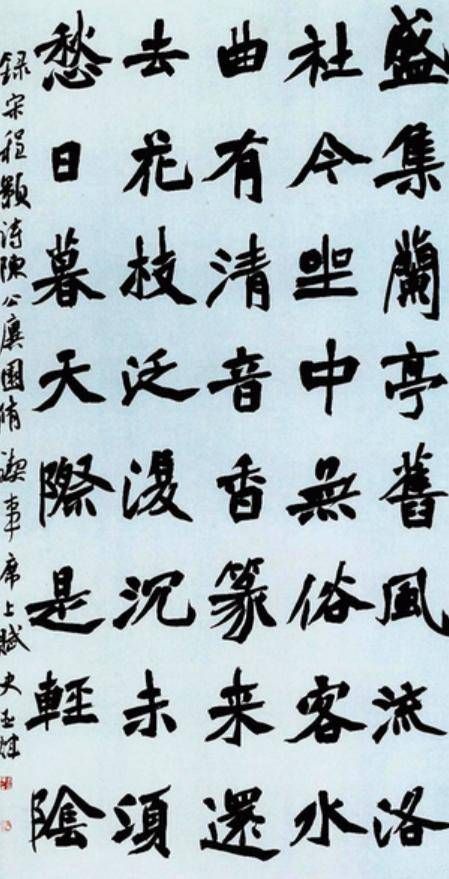 盛集蘭亭舊風流洛
社今坐中無俗客水
曲有清音香篆来還
去花枝泛復沉未須
愁日暮天際是輕陰
録宋程顥诗陳公廙園脩禊事席上賦史